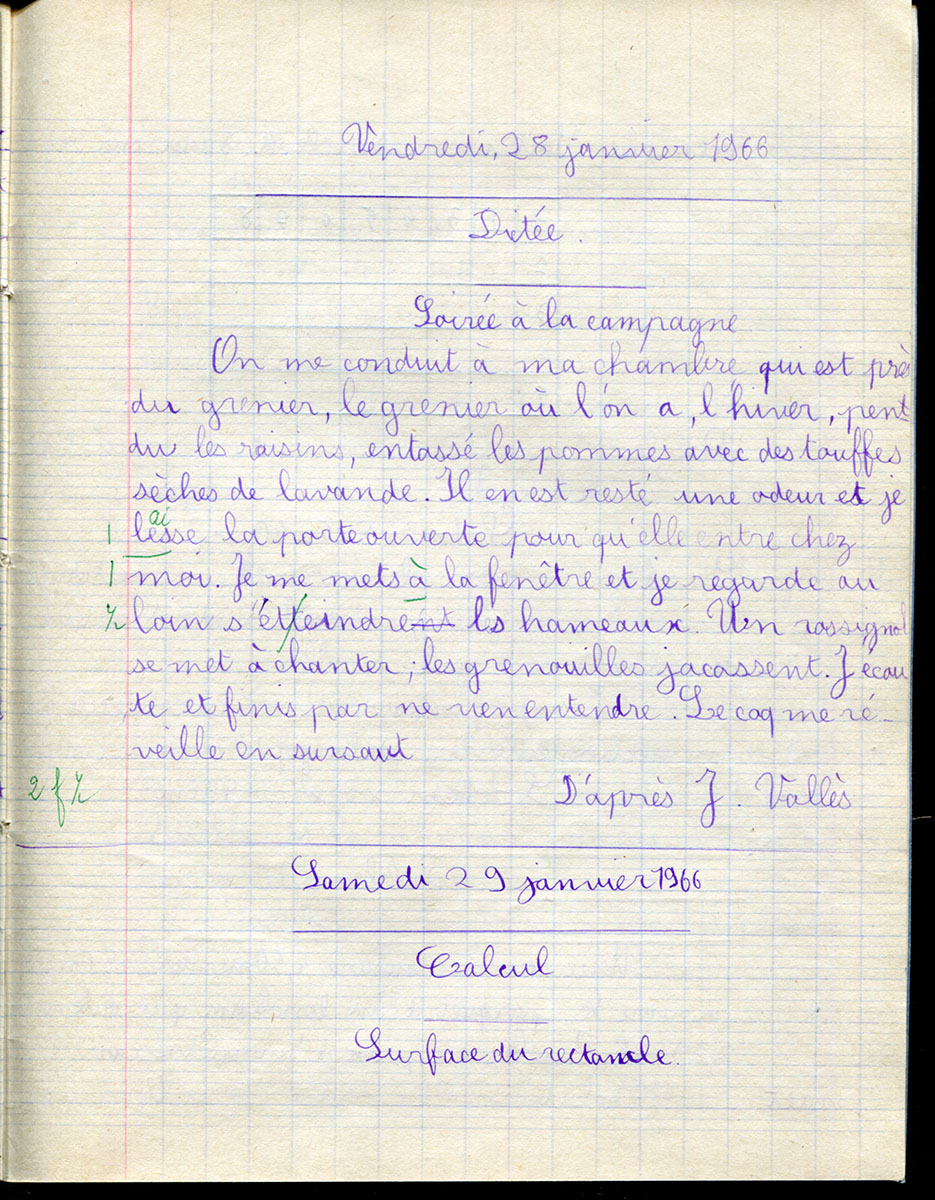 Vendredi, 28 janvier 1966
Dictée.
Soirée à la campagne
On me conduit à ma chambre qui est près
du grenier, le grenier où l'on a, l'hiver, pen
du les raisins, entassé les pommes avec des touffes
sèches de lavande. Il en est resté une odeur et je
ai
1 lesse la porte ouverte pour qu'elle entre chez
1 moi. Je me mets à la fenêtre et je regarde au
½ loin s'etteindrent ls hameaux. Un rossignol
se met à chanter, les grenouilles jacassent. J'écou
te et finis par ne rien entendre. Le coq me ré-
veille en sursaut
2 f ½
D'après J. Vallès
Samedi 29 janvier 1966
Calcul
Surface du rectancle.